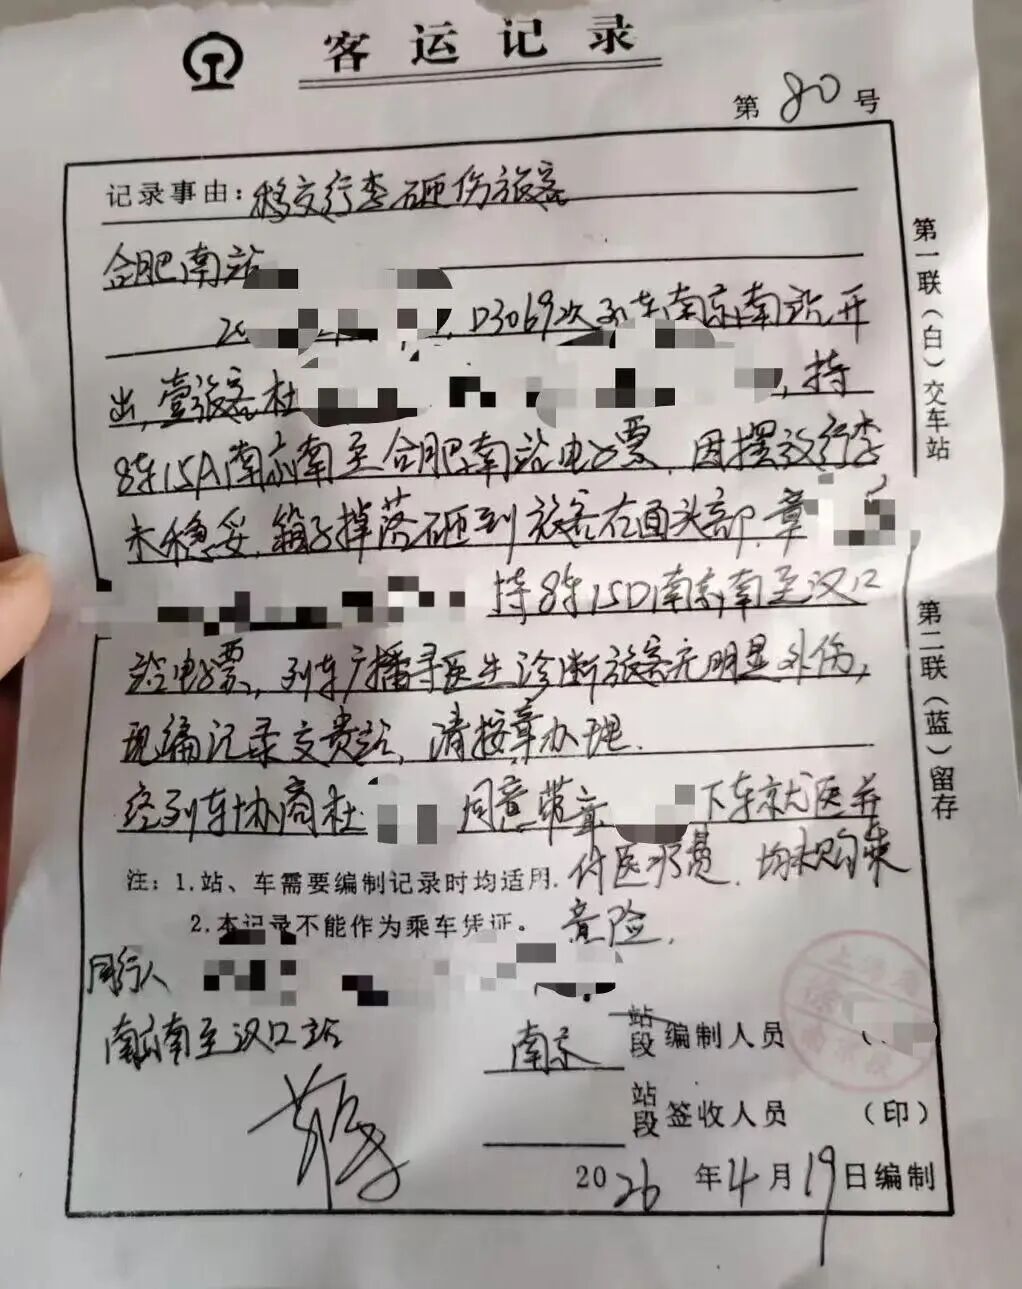 客运记录
第80号
记录事由：移交行李砸伤旅客
合肥南站
20 D3069次列车南京南站开
出，壹旅客杜 ，持
8车15A南京南至合肥南站电子票，因摆放行李
未稳妥，箱子掉落砸到旅客右面头部，章
持8车15D南京南至汉口
站电子票，列车广播寻医生诊断旅客无明显外伤，
现编记录交贵站，请按章办理.
经列车协商杜 同意带章 下车就医并
付医疗费，均未购乘
意险.
注：1.站、车需要编制记录时均适用.
2.本记录不能作为乘车凭证。
同行人
南京南至汉口站
南京 站段 编制人员
站段 签收人员 （印）
2026年4月19日编制
第一联（白）交车站
第二联（蓝）留存
上海 南京段